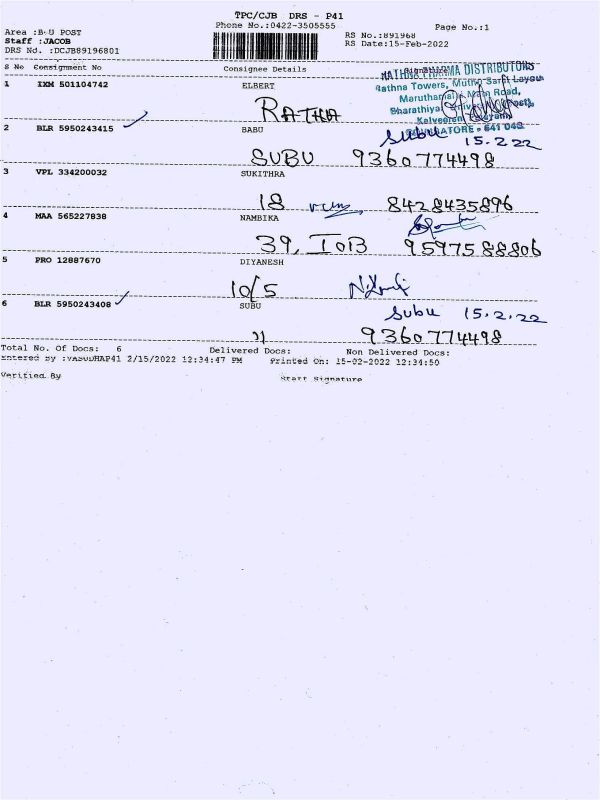 TPC/CJB DRS - P41
Area :B-U POST
Phone No.:0422-3505555
Page No.:1
Staff :JACOB
RS No.:891968
DRS No. :DCJB89196801
RS Date:15-Feb-2022
S No Consignment No Consignee Details Signature
1 IXM 501104742 ELBERT
RATHNA PHARMA DISTRIBUTORS
Rathna Towers, Muthu Layout
Road,
Bharathiyar
RATHNA
COIMBATORE - 641 046
2 BLR 5950243415 BABU
Subu 15.2.22
SUBU 9360774498
3 VPL 334200032 SUKITHRA
18 8428435896
4 MAA 565227838 NAMBIKA
39, IOB 9597588806
5 PRO 12887670 DIYANESH
10/5
6 BLR 5950243408 SUBU
Subu 15.2.22
" 9360774498
Total No. Of Docs: 6 Delivered Docs: Non Delivered Docs:
Entered By :VASUDHAP41 2/15/2022 12:34:47 PM Printed On: 15-02-2022 12:34:50
Verified By Staff Signature